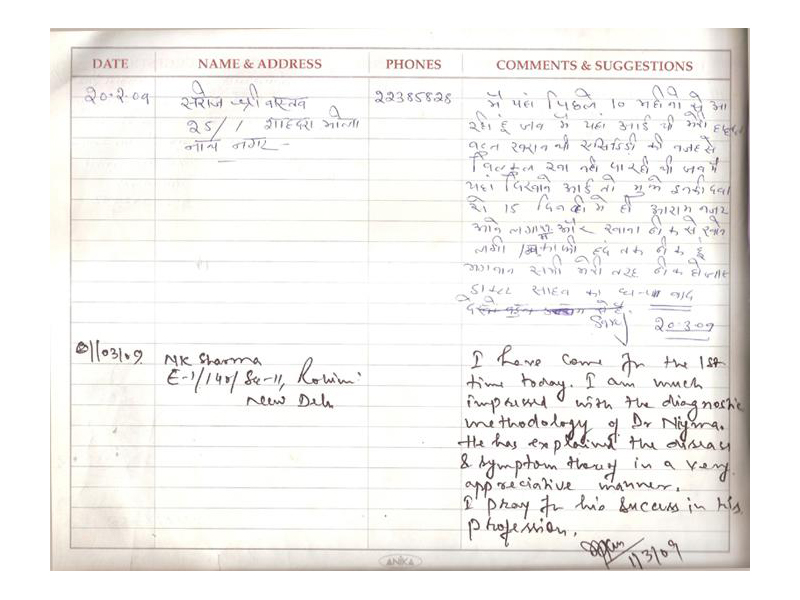 DATE NAME & ADDRESS PHONES COMMENTS & SUGGESTIONS
20-2-09 सरोज श्रीवास्तव 22385828 मैं यहां पिछले 10 महीनों से आ
25/1 शाहदरा भोला रही हूं जब मैं यहां आई थी मेरी
नाथ नगर - की वजह से
बिल्कुल खा नहीं पा रही थी जब मैं
यहां दिखाने आई तो मुझे इनकी दवा
से 15 दिन में ही आराम नजर
आने लगा और खाना ठीक से खाने
लगी काफी हद तक ठीक हूं
भगवान सभी मेरी तरह ठीक हो जाए
डाक्टर साहब का धन्यवाद
20.3.09
01/03/09 NK Sharma I have come for the 1st
E-1/140/ Se-11, Rohini time today. I am much
New Delhi impressed with the diagnostic
methodology of Dr Niyma.
He has explained the disease
& symptom theory in a very
appreciative manner.
I pray for his success in his
profession.
1/3/09
ANIKA